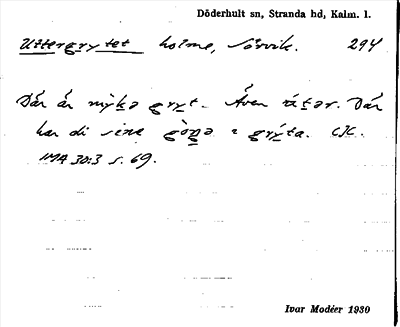 Döderhult sn, Stranda hd, Kalm. l.
Uttergrytet holme, Sörvik. 294
Där är mýkə gryt. Även rátər. Där
har di sine gö̀ŋə i grýta. CJC.
MA 30:3 s. 69.
Ivar Modéer 1930